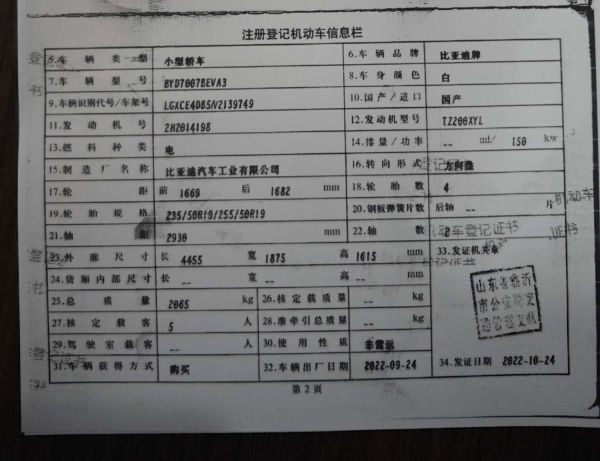 注册登记机动车信息栏
5.车辆类型 小型轿车 6.车辆品牌 比亚迪牌
7.车辆型号 BYD7007BEVA3 8.车身颜色 白
9.车辆识别代号/车架号 LGXCE4DB5N2139749 10.国产/进口 国产
11.发动机号 2H2014198 12.发动机型号 TZ200XYL
13.燃料种类 电 14.排量/功率 -- ml/ 150 kw
15.制造厂名称 比亚迪汽车工业有限公司 16.转向形式 方向盘
17.轮距 前 1669 后 1682 mm 18.轮胎数 4
19.轮胎规格 235/50R19/255/50R19 20.钢板弹簧片数 后轴 -- 片
21.轴距 2930 mm 22.轴数 2
23.外廓尺寸 长 4455 宽 1875 高 1615 mm 33.发证机关章
24.货厢内部尺寸 长 -- 宽 -- 高 -- mm
25.总质量 2065 kg 26.核定载质量 -- kg
27.核定载客 5 人 28.准牵引总质量 -- kg
29.驾驶室载客 -- 人 30.使用性质 非营运
31.车辆获得方式 购买 32.车辆出厂日期 2022-09-24 34.发证日期 2022-10-24
山东省临沂
市公安局交
通管理支队
第 2 页